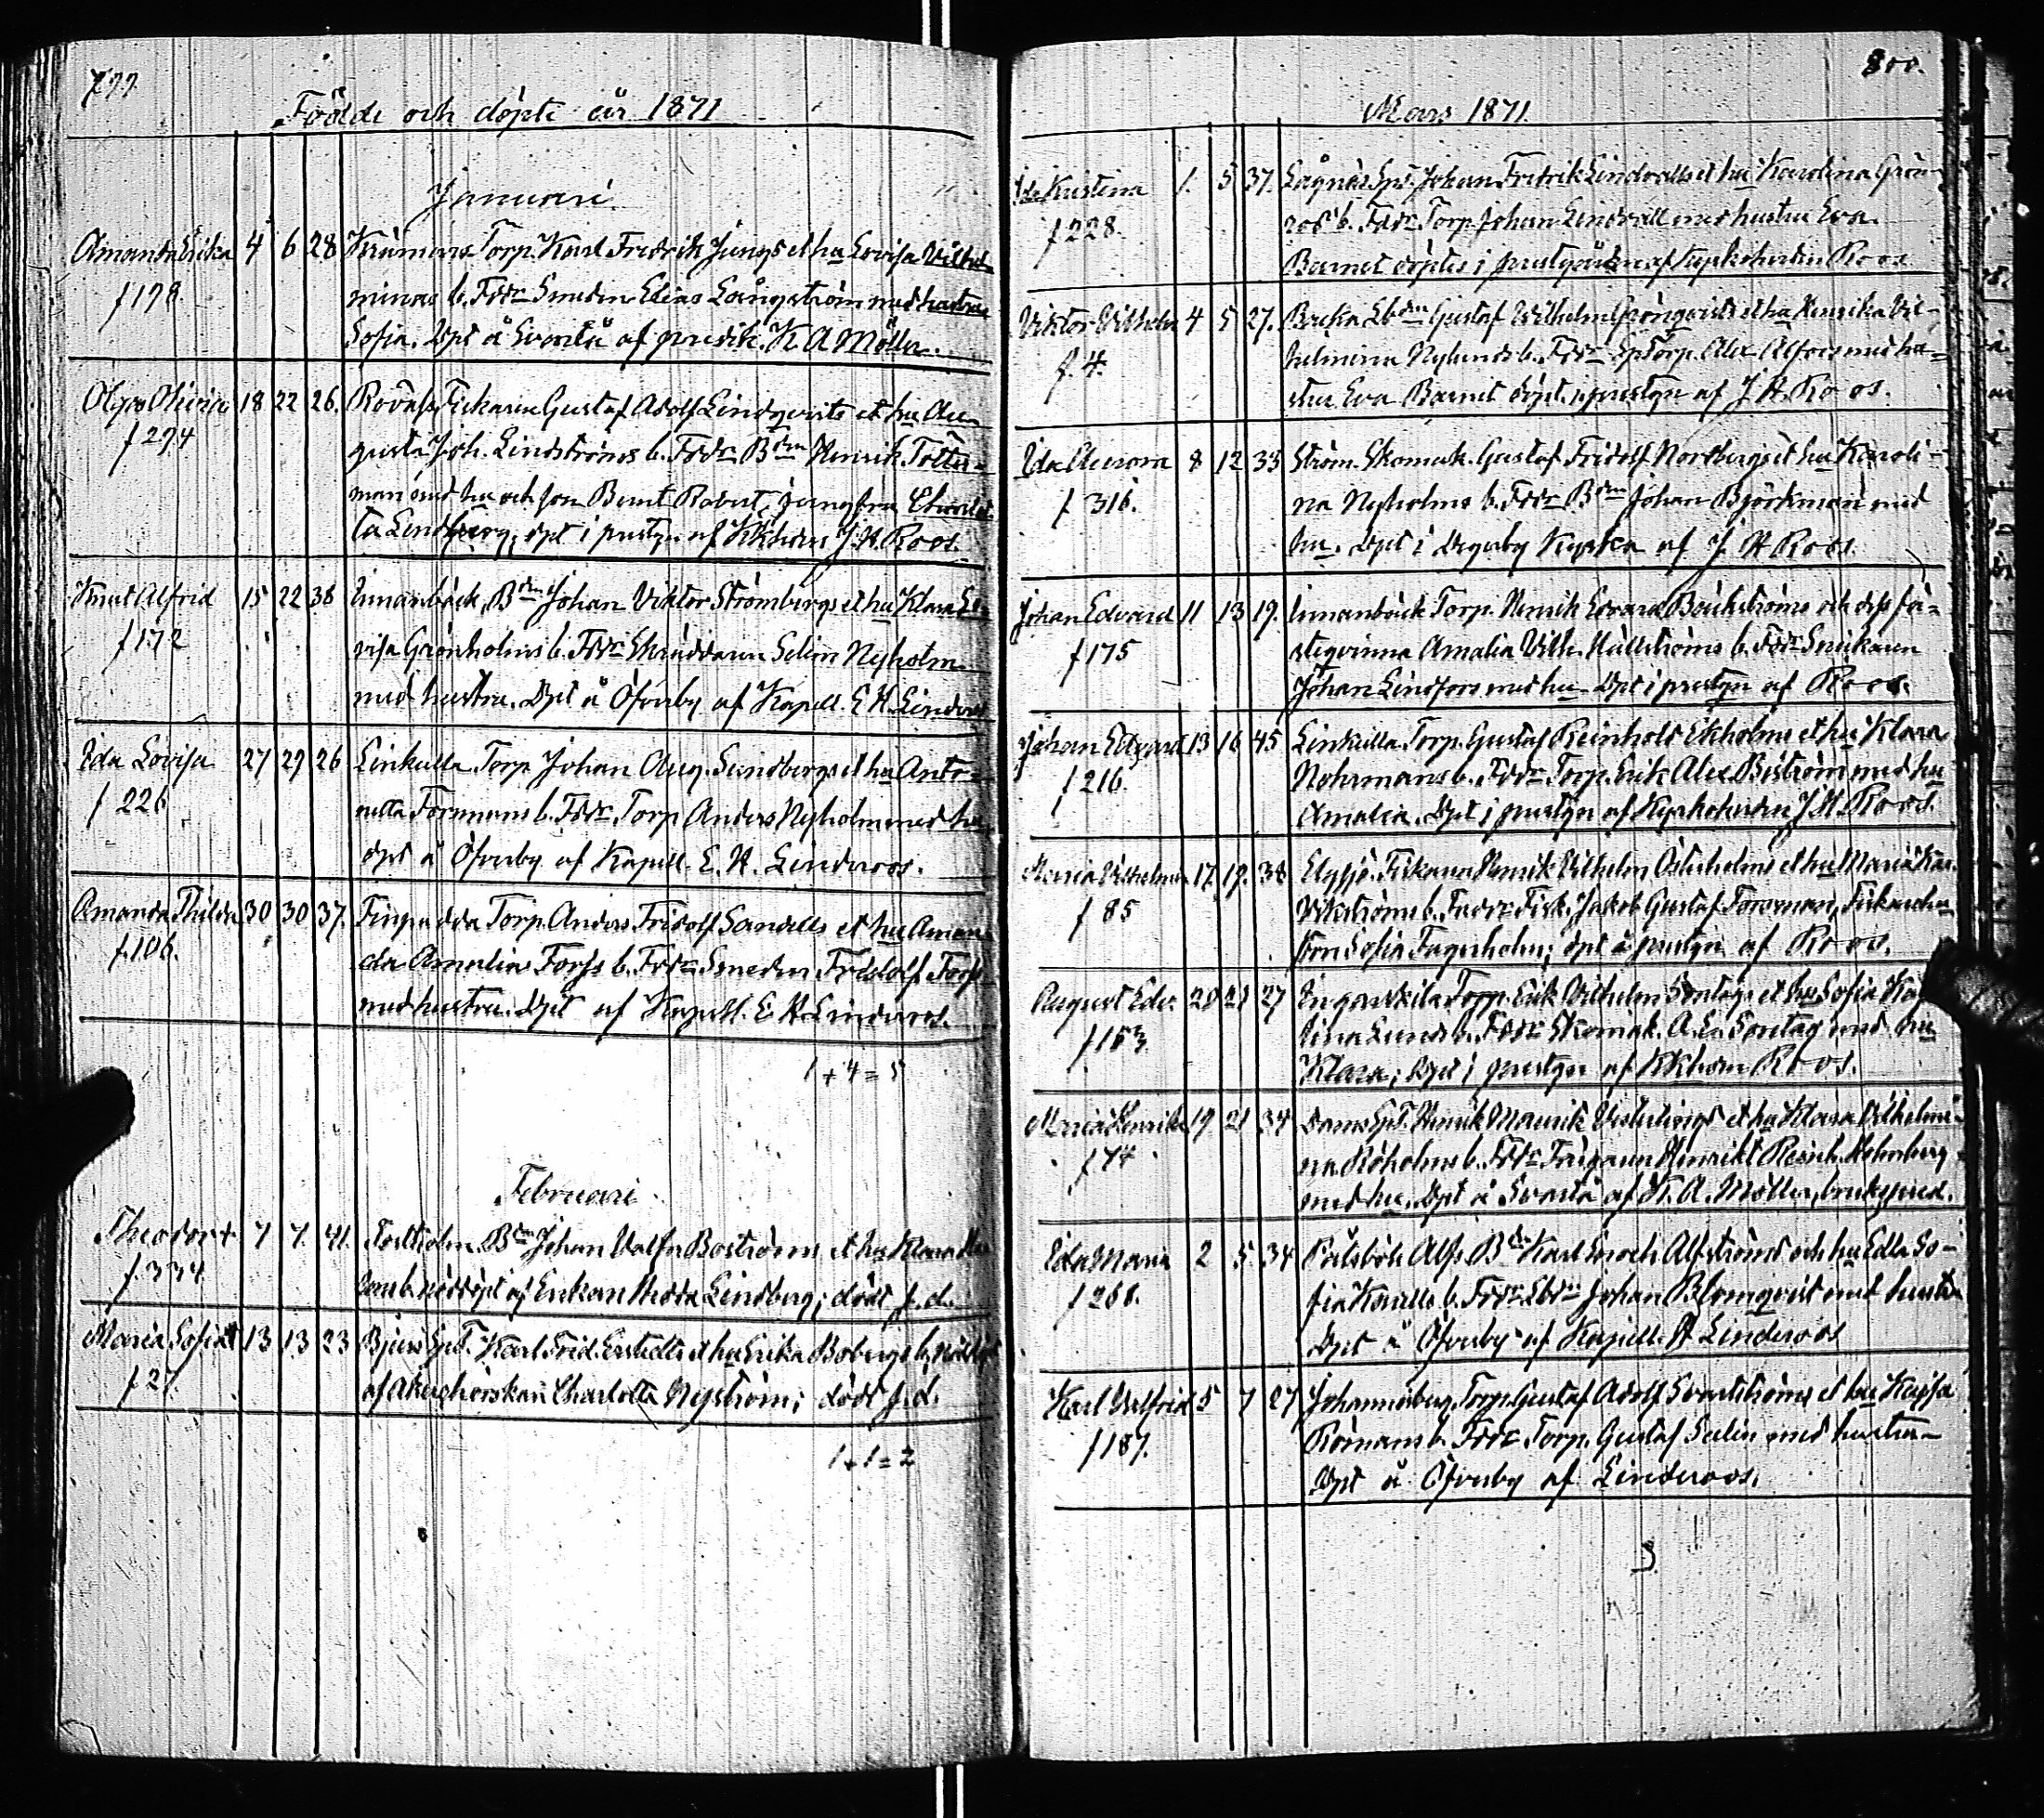 799
Födde och döpte år 1871
Januari
Amanda Erika 4 6 28 Torp. Karl Fredrik Ljungs et hu Lovisa Vilhel-
f 198 minas b. Fddr Smeden Elias Långström med hustru
Sofia. Dpt å Svartå af predik. K A Möller.
Olga Olivia 18 22 26 Fiskaren Gustaf Adolf Lindqvists et hu Au-
f 294 gusta Joh. Lindströms b. Fddr Bdn Henrik
man med hu och son Bernt Robert, jungfru
ta Lindberg, dpt i prestgn af Kkhden J. H. Roos.
Knut Alfrid 15 22 38 Innanbäck, Bdn Johan Viktor Strömbergs et hu Klara Lo-
f 172 visa Grönholms b. Fddr Skräddaren Selim Nyholm
med hustru. Dpt å Öfverby af Kapell. E H Linderoos
Ida Lovisa 27 29 26 Linkulla Torp Johan Aug. Sundbergs et hu Anto-
f 226 netta Formans b. Fddr Torp Anders Nyholm med hu.
dpt å Öfverby af Kapell. E. H. Linderoos.
Amanda Thilda 30 30 37. Finpadda Torp. Anders Fridolf Sandells et hu Aman-
f. 106. da Amalia Forss b. Fddr Smeden Fridolf Forss
med hustru. Dpt af Kapell. E. H. Linderoos.
1 + 4 = 5
Februari
Theodor + 7 7. 41. Bdn Johan Boströms et hu Klara
f. 334 b. nöddöpt af Enkan Lindberg; död s. d.
Maria Sofia + 13 13 23 Karl Frid. et hu Erika Bobergs b. Nöddöpt
f 27. af Charlotta Nyström; död s. d.
1 + 1 = 2
800.
Mars 1871.
Ida Kristina 1. 5 37. Johan Fredrik Lindvalls et hu Karolina Grön-
f 228. roos b. Fddr Torp. Johan Lindvall med hustru Eva.
Barnet döptes i prestgården af Kyrkoherden Roos
Viktor Vilhelm 4 5 27. Gustaf Wilhelm Grönqvists et hu Henrika Vil-
f. 4. helmina Nylunds b. Fddr Torp. Alex Alfors med hu-
stru Eva Barnet döpt i prestgn af J. H. Roos.
Ida Aurora 8 12 33 Ström. Skomak. Gustaf Fridolf Nordbergs et hu Karoli-
f 316. na Nyholms b. Fddr Bdn Johan Björkman med
hu. Dpt i Degerby Kyrka af J H Roos.
Johan Edvard 11 13 19. Innanbäck Torp. Henrik Edvard Bäckströms och dess fä-
f 175 steqvinna Amalia Vilh. Hällströms b. Fddr Snickaren
Johan Lindfors med hu Dpt i prestgn af Roos.
Johan Edvard 13 16 45 Linkulla Torp. Gustaf Reinhold Ekholms et hu Klara
f 216. Nohrmans b. Fddr Torp. Erik Alex. Biström med hu
Amalia. Dpt i prestgn af Kyrkoherden J H. Roos.
Maria Vilhelmina 17. 19. 38 Elgsjö. Fiskaren Henrik Vilhelm Österholms et hu Maria Kar.
f 85 Vikströms b. Fddr Fisk. Jakob Gustaf Forsman,
Sofia Fagerholm; dpt å prestgn af Roos.
August Edv. 20 21 27 Ingarskila Torp. Erik Vilhelm Sontags et hu Sofia
f 153. Lunds b. Fddr Skomak. A. E. Sontag med hu
Klara; Dpt i prestgn af Kkherden Roos.
Maria Henrika 19 21 34 Henrik Mauritz Westerlings et hu Klara Vilhelmi-
f 74 na Röholms b. Fddr Färgaren Henrik Reinh. Holmberg
med hu. Dpt å Svartå af K. A. Möller, brukspred.
Eda Maria 2 5. 34 Pålsböle Alfs. Bdn Karl Enoch Alfströms och hu Edla So-
f 268. fia b. Fddr Johan Blomqvist med hustru
Dpt å Öfverby af Kapell. H Linderoos
Karl Valfrid 5 7 27 Johannesberg. Torp. Gustaf Adolf Svartströms et hu Kajsa
f 187. Römans b. Fddr Torp. Gustaf Selin med hustru
Dpt å Öfverby af Linderoos.